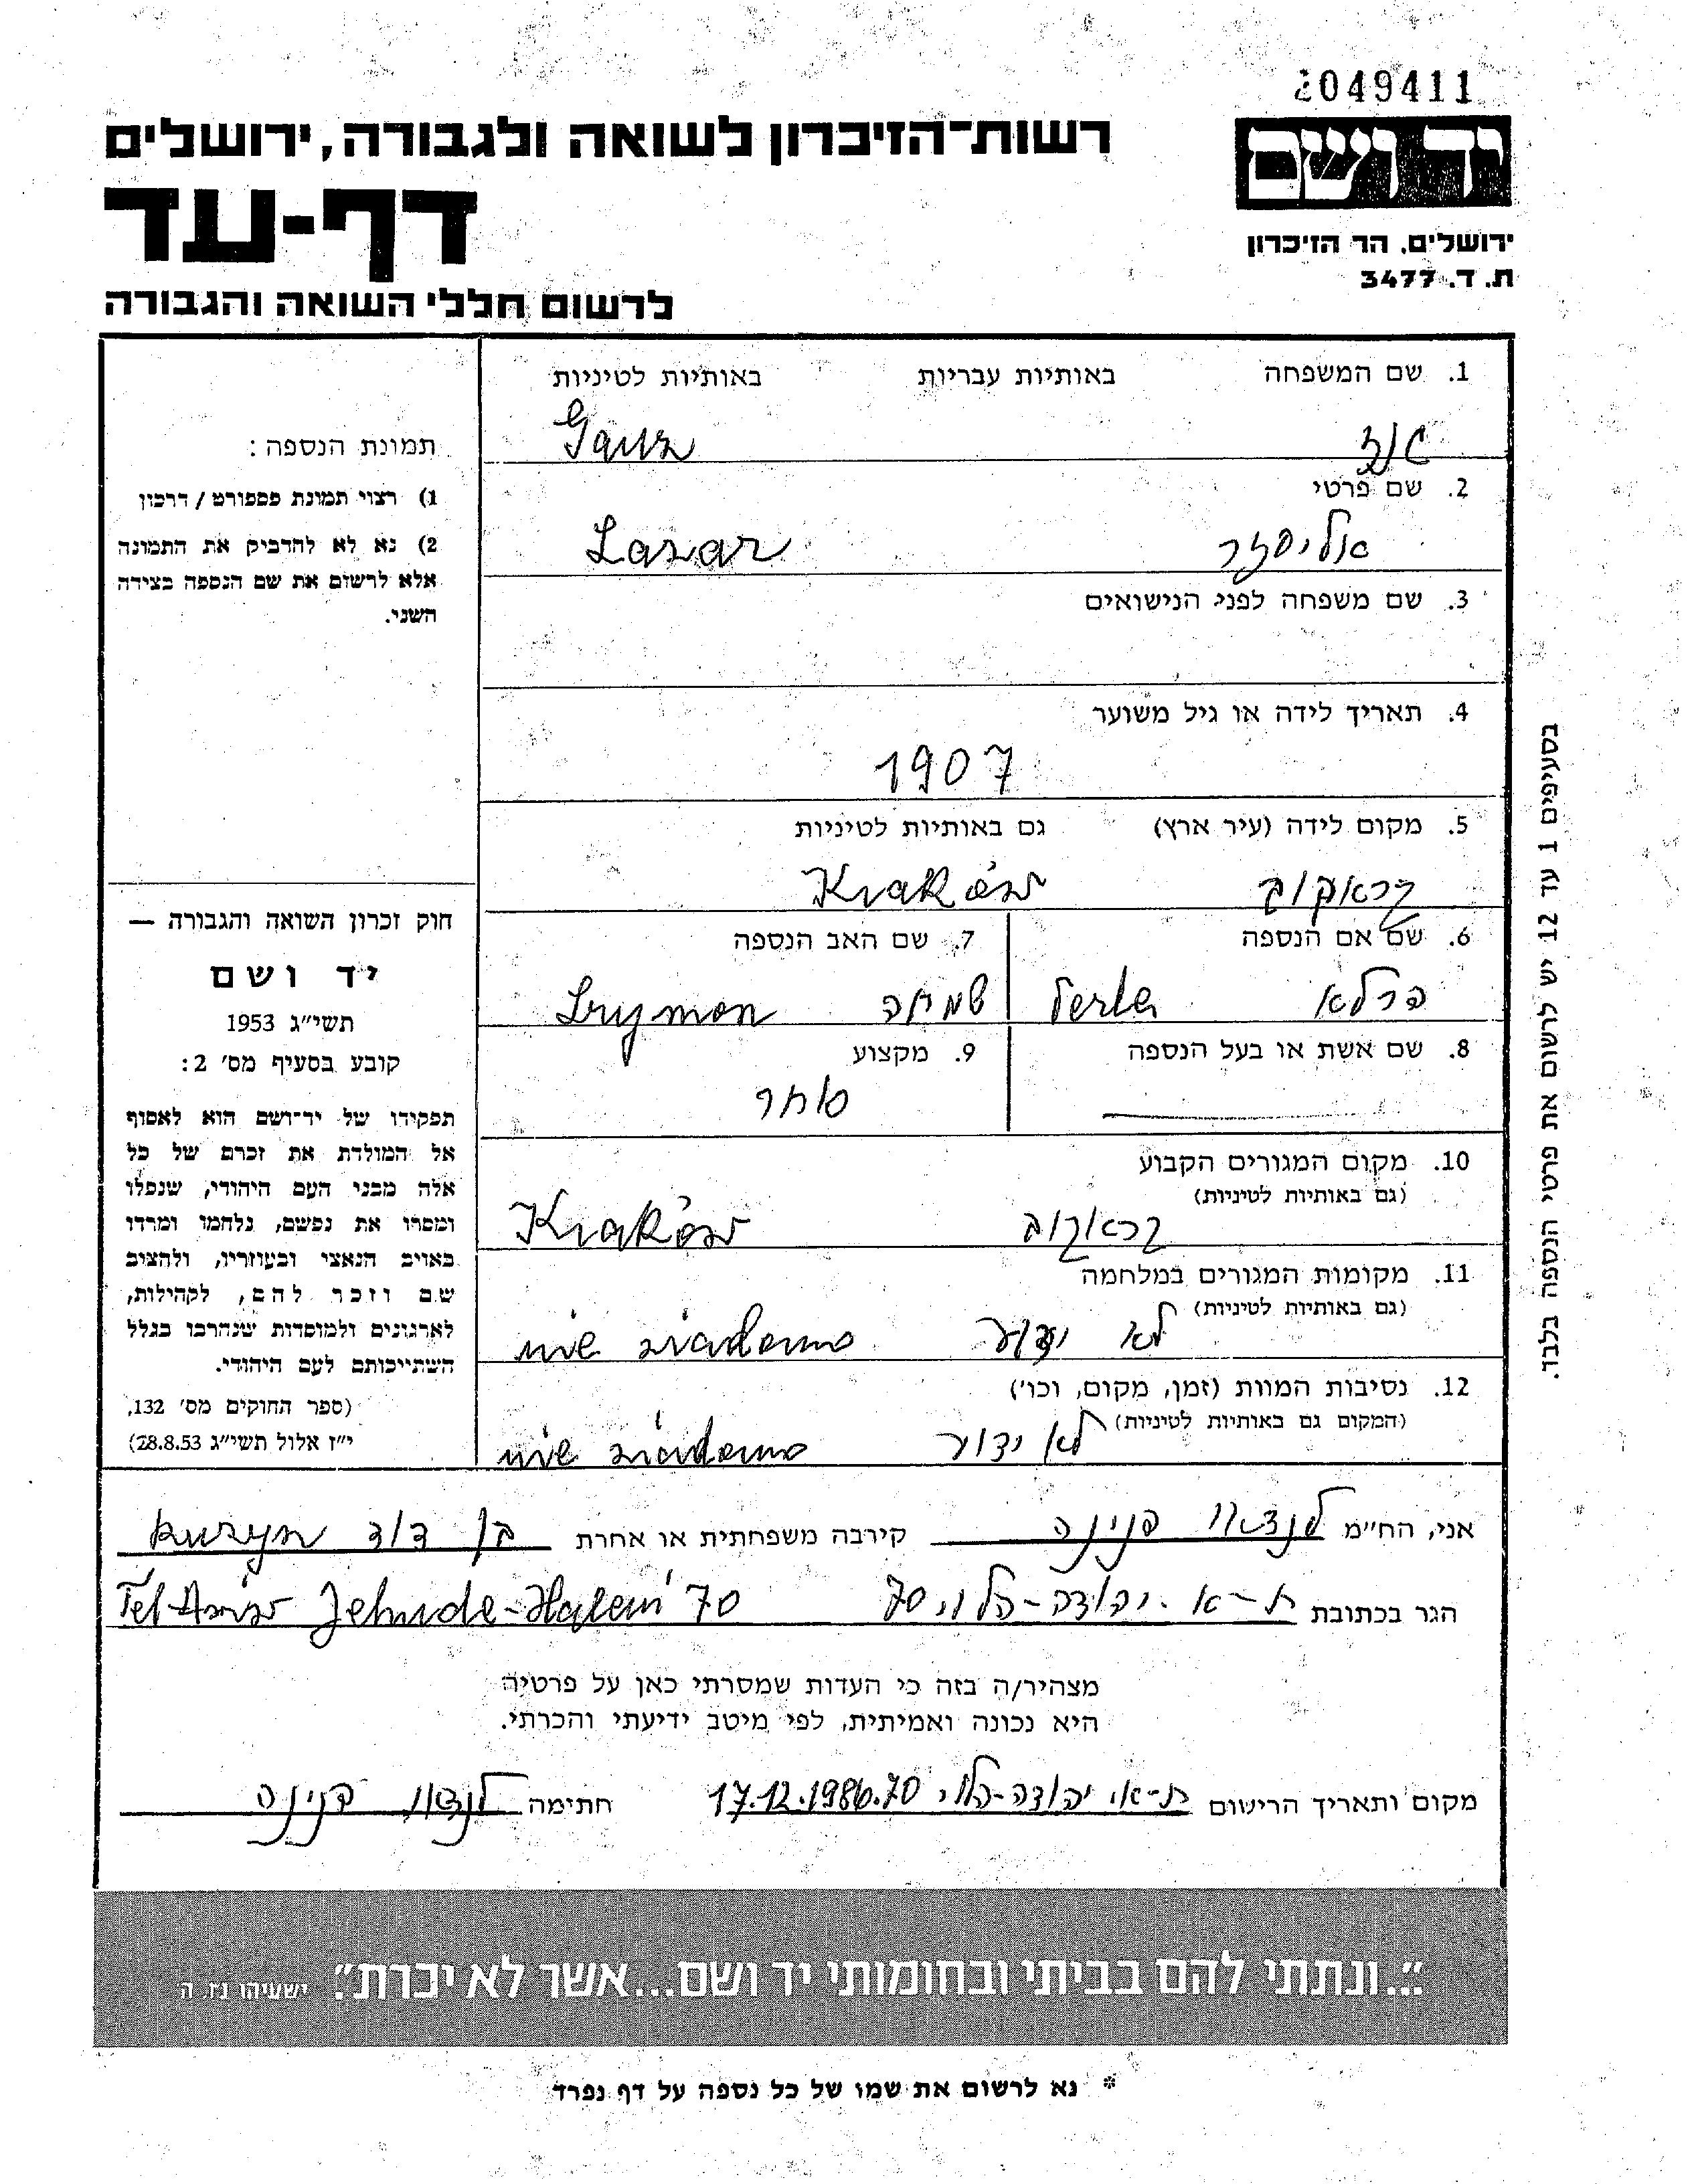 2049411
רשות־הזיכרון לשואה ולגבורה, ירושלים
יד ושם
דף-עד
ירושלים, הר הזיכרון
ת. ד. 3477
לרשום חללי השואה והגבורה
1. שם המשפחה באותיות עבריות באותיות לטיניות
גנז Ganz
2. שם פרטי
אליעזר Lazar
3. שם משפחה לפני הנישואים
4. תאריך לידה או גיל משוער
1907
5. מקום לידה (עיר ארץ) גם באותיות לטיניות
קראקוב Kraków
6. שם אם הנספה 7. שם האב הנספה
פרלא Perla שמחה Szymon
8. שם אשת או בעל הנספה 9. מקצוע
סוחר
10. מקום המגורים הקבוע
(גם באותיות לטיניות)
קראקוב Kraków
11. מקומות המגורים במלחמה
(גם באותיות לטיניות)
לא ידוע nie wiadomo
12. נסיבות המוות (זמן, מקום, וכו')
(המקום גם באותיות לטיניות)
לא ידוע nie wiadomo
תמונת הנספה:
1) רצוי תמונת פספורט / דרכון
2) נא לא להדביק את התמונה
אלא לרשום את שם הנספה בצידה
השני.
חוק זכרון השואה והגבורה —
יד ושם
תשי״ג 1953
קובע בסעיף מס׳ 2:
תפקידו של יד־ושם הוא לאסוף
אל המולדת את זכרם של כל
אלה מבני העם היהודי, שנפלו
ומסרו את נפשם, נלחמו ומרדו
באויב הנאצי ובעוזריו, ולהציב
שם וזכר להם, לקהילות,
לארגונים ולמוסדות שנהרבו בגלל
השתייכותם לעם היהודי.
(ספר החוקים מס׳ 132,
י״ז אלול תשי״ג 28.8.53)
בסעיפים 1 עד 12 יש לרשום את פרטי הנספה בלבד.
אני, הח״מ לנדאו פנינה קירבה משפחתית או אחרת בן דוד kuzyn
הגר בכתובת ת-א. יהודה-הלוי 70 Tel-Awiw Jehuda-Halewi 70
מצהיר/ה בזה כי העדות שמסרתי כאן על פרטיה
היא נכונה ואמיתית, לפי מיטב ידיעתי והכרתי.
מקום ותאריך הרישום ת-א, יהודה-הלוי 70 17.12.1986. חתימה לנדאו פנינה
״...ונתתי להם בביתי ובחומותי יד ושם...אשר לא יכרת״. ישעיהו נז, ה
* נא לרשום את שמו של כל נספה על דף נפרד